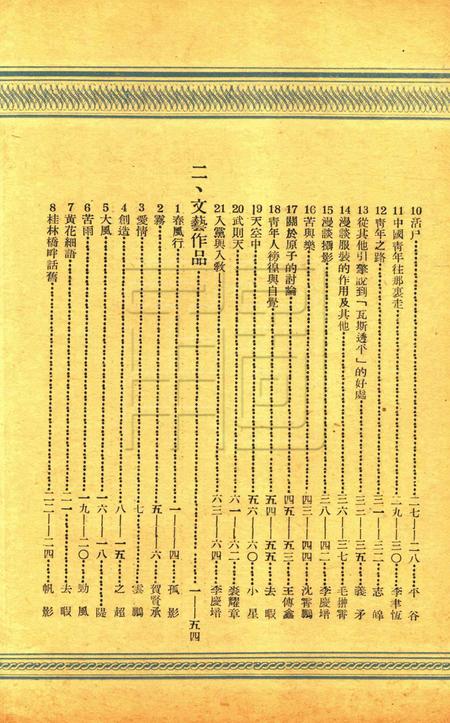 10活戶………二七—二八 平谷
11中國青年往那裏走………二九—三〇 李聿恆
12青年之路………三一—三二 志皞
13從其他引擎說到「瓦斯透平」的好處………三三—三五 義矛
14漫談服裝的作用及其他………三六—三七 毛翀霄
15漫談攝影………三八—四二 李慶增
16苦與樂………四三—四四 沈霄鵬
17關於原子的討論………四五—五三 王傳鑫
18青年人徬徨與自覺………五四—五五 去暇
19天空中………五六—六〇 小星
20武則天………六一—六二 裴耀章
21入黨與入教………六三—六四 李慶增
二、文藝作品………一—五四
1春風行………一—四 孤影
2霧………五—六 賀賢承
3愛情………七 雲鵬
4創造………八—一五 之超
5大風………一六—一八 隄
6苦雨………一九—二〇 勁風
7黃花細語………二一 去暇
8桂林橋畔話舊………二二—二四 帆影